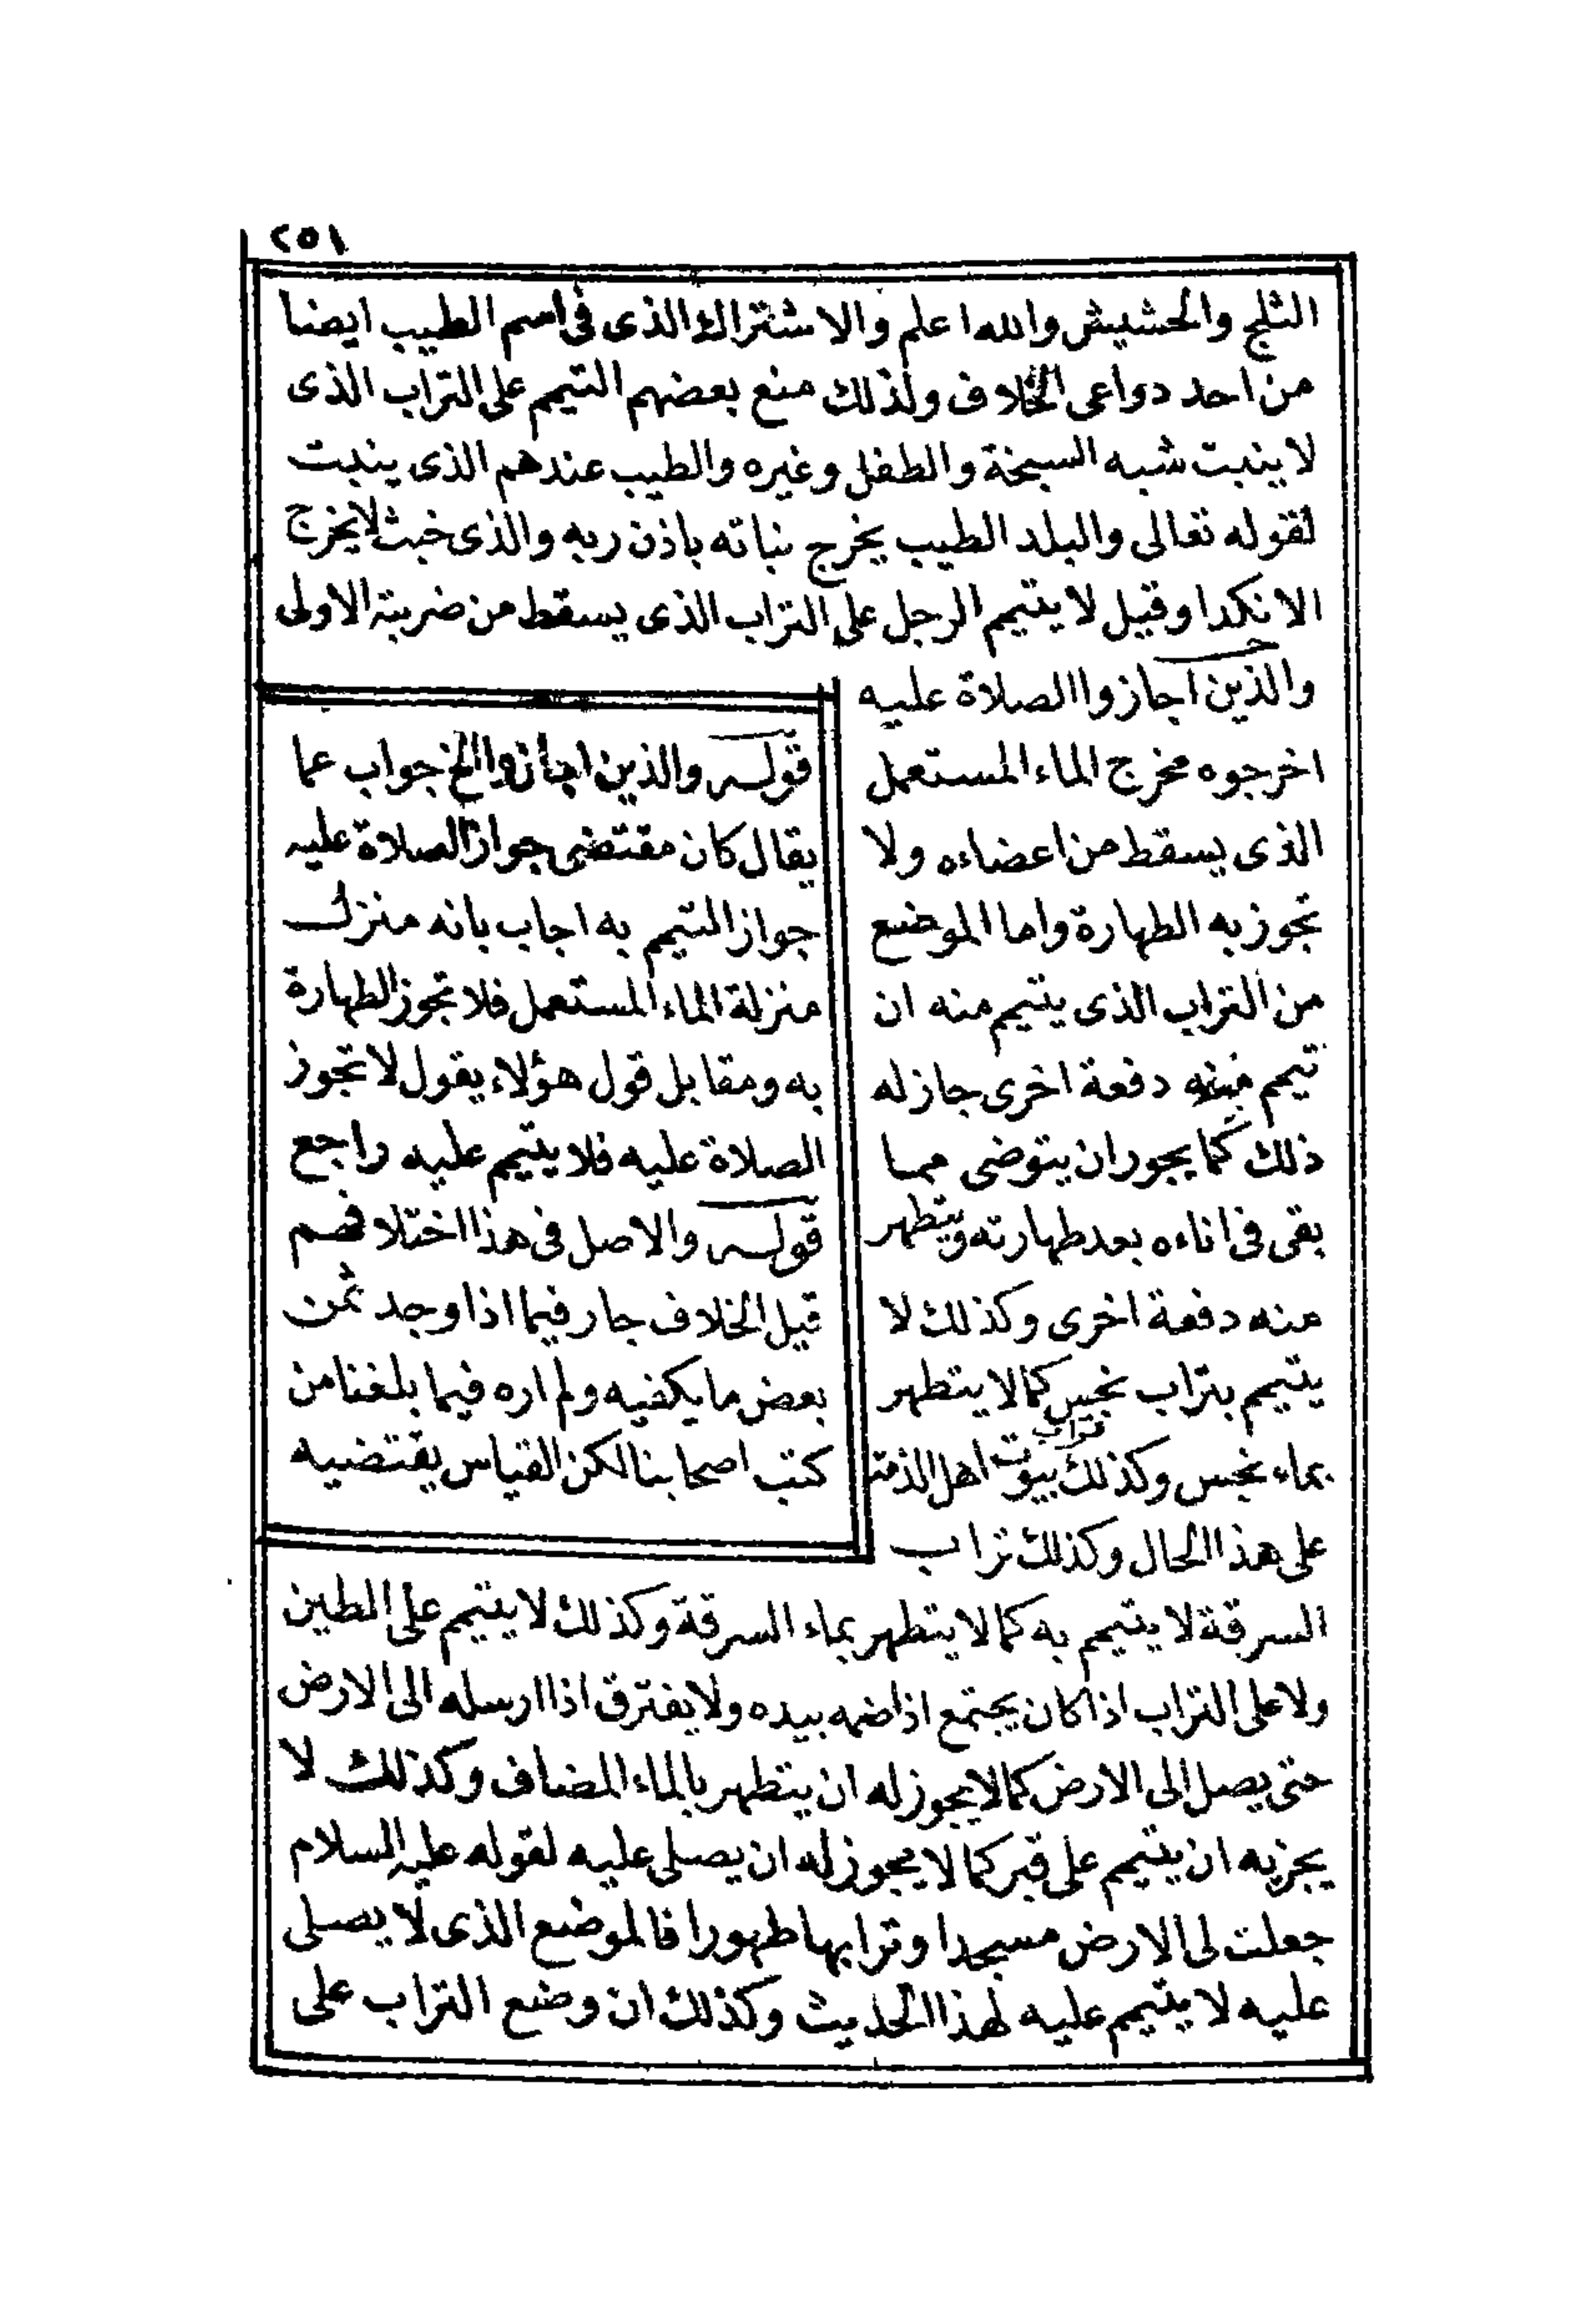 ٢٥١
الثلج والحشيش والله اعلم والاشتراك الذى فى اسم الطيب ايضا
من احد دواعى الخلاف ولذلك منع بعضهم التيمم على التراب الذى
لا ينبت شبه السبخة والطفل وغيره والطيب عندهم الذى ينبت
لقوله تعالى والبلد الطيب يخرج نباته باذن ربه والذى خبث لا يخرج
الا نكدا وقيل لا يتيمم الرجل على التراب الذى يسقط من ضربته الاولى
والذين اجازوا الصلاة عليه
اخرجوه مخرج الماء المستعمل
الذى يسقط من اعضاءه ولا
تجوز به الطهارة واما الموضع
من التراب الذى يتيمم منه ان
تيمم منه دفعة اخرى جاز له
ذلك كما يجوز ان يتوضى مما
بقى فى اناءه بعد طهارته ويتطهر
منه دفعة اخرى وكذلك لا
يتيمم بتراب نجس كما لا يتطهر
بماء نجس وكذلك تراب بيوت اهل الذمة
على هذا الحال وكذلك تراب
قوله والذين اجازوا الخ جواب عما
يقال كان مقتضى جواز الصلاة عليه
جواز التيمم به اجاب بانه منزل
منزلة الماء المستعمل فلا تجوز الطهارة
به ومقابل قول هؤلاء يقول لا تجوز
الصلاة عليه فلا يتيمم عليه راجع
قوله والاصل فى هذا اختلافهم
قيل الخلاف جار فيما اذا وجد ثمن
بعض ما يكفيه ولم اره فيما بلغنا من
كتب اصحابنا لكن القياس يقتضيه
السرقة لا يتيمم به كما لا يتطهر بماء السرقة وكذلك لا يتيمم على الطين
ولا على التراب اذا كان يجتمع اذا ضمه بيده ولا يفترق اذا ارسله الى الارض
حتى يصل الى الارض كما لا يجوز له ان يتطهر بالماء المضاف وكذلك لا
يجزيه ان يتيمم على قبر كما لا يجوز له ان يصلى عليه لقوله عليه السلام
جعلت لى الارض مسجدا وترابها طهورا فالموضع الذى لا يصلى
عليه لا يتيمم عليه لهذا الحديث وكذلك ان وضع التراب على